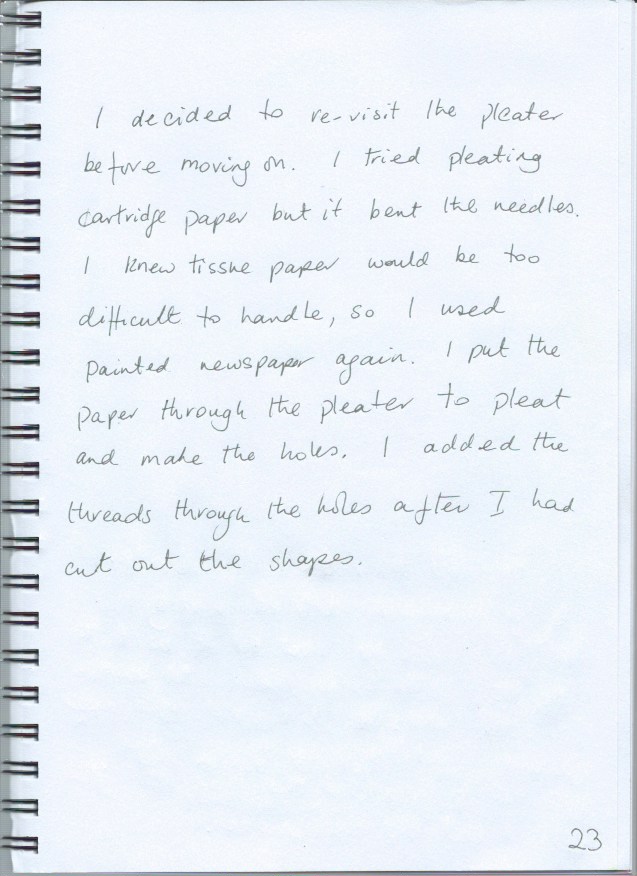 I decided to re-visit the pleater
before moving on. I tried pleating
cartridge paper but it bent the needles.
I knew tissue paper would be too
difficult to handle, so I used
painted newspaper again. I put the
paper through the pleater to pleat
and make the holes. I added the
threads through the holes after I had
cut out the shapes.
23